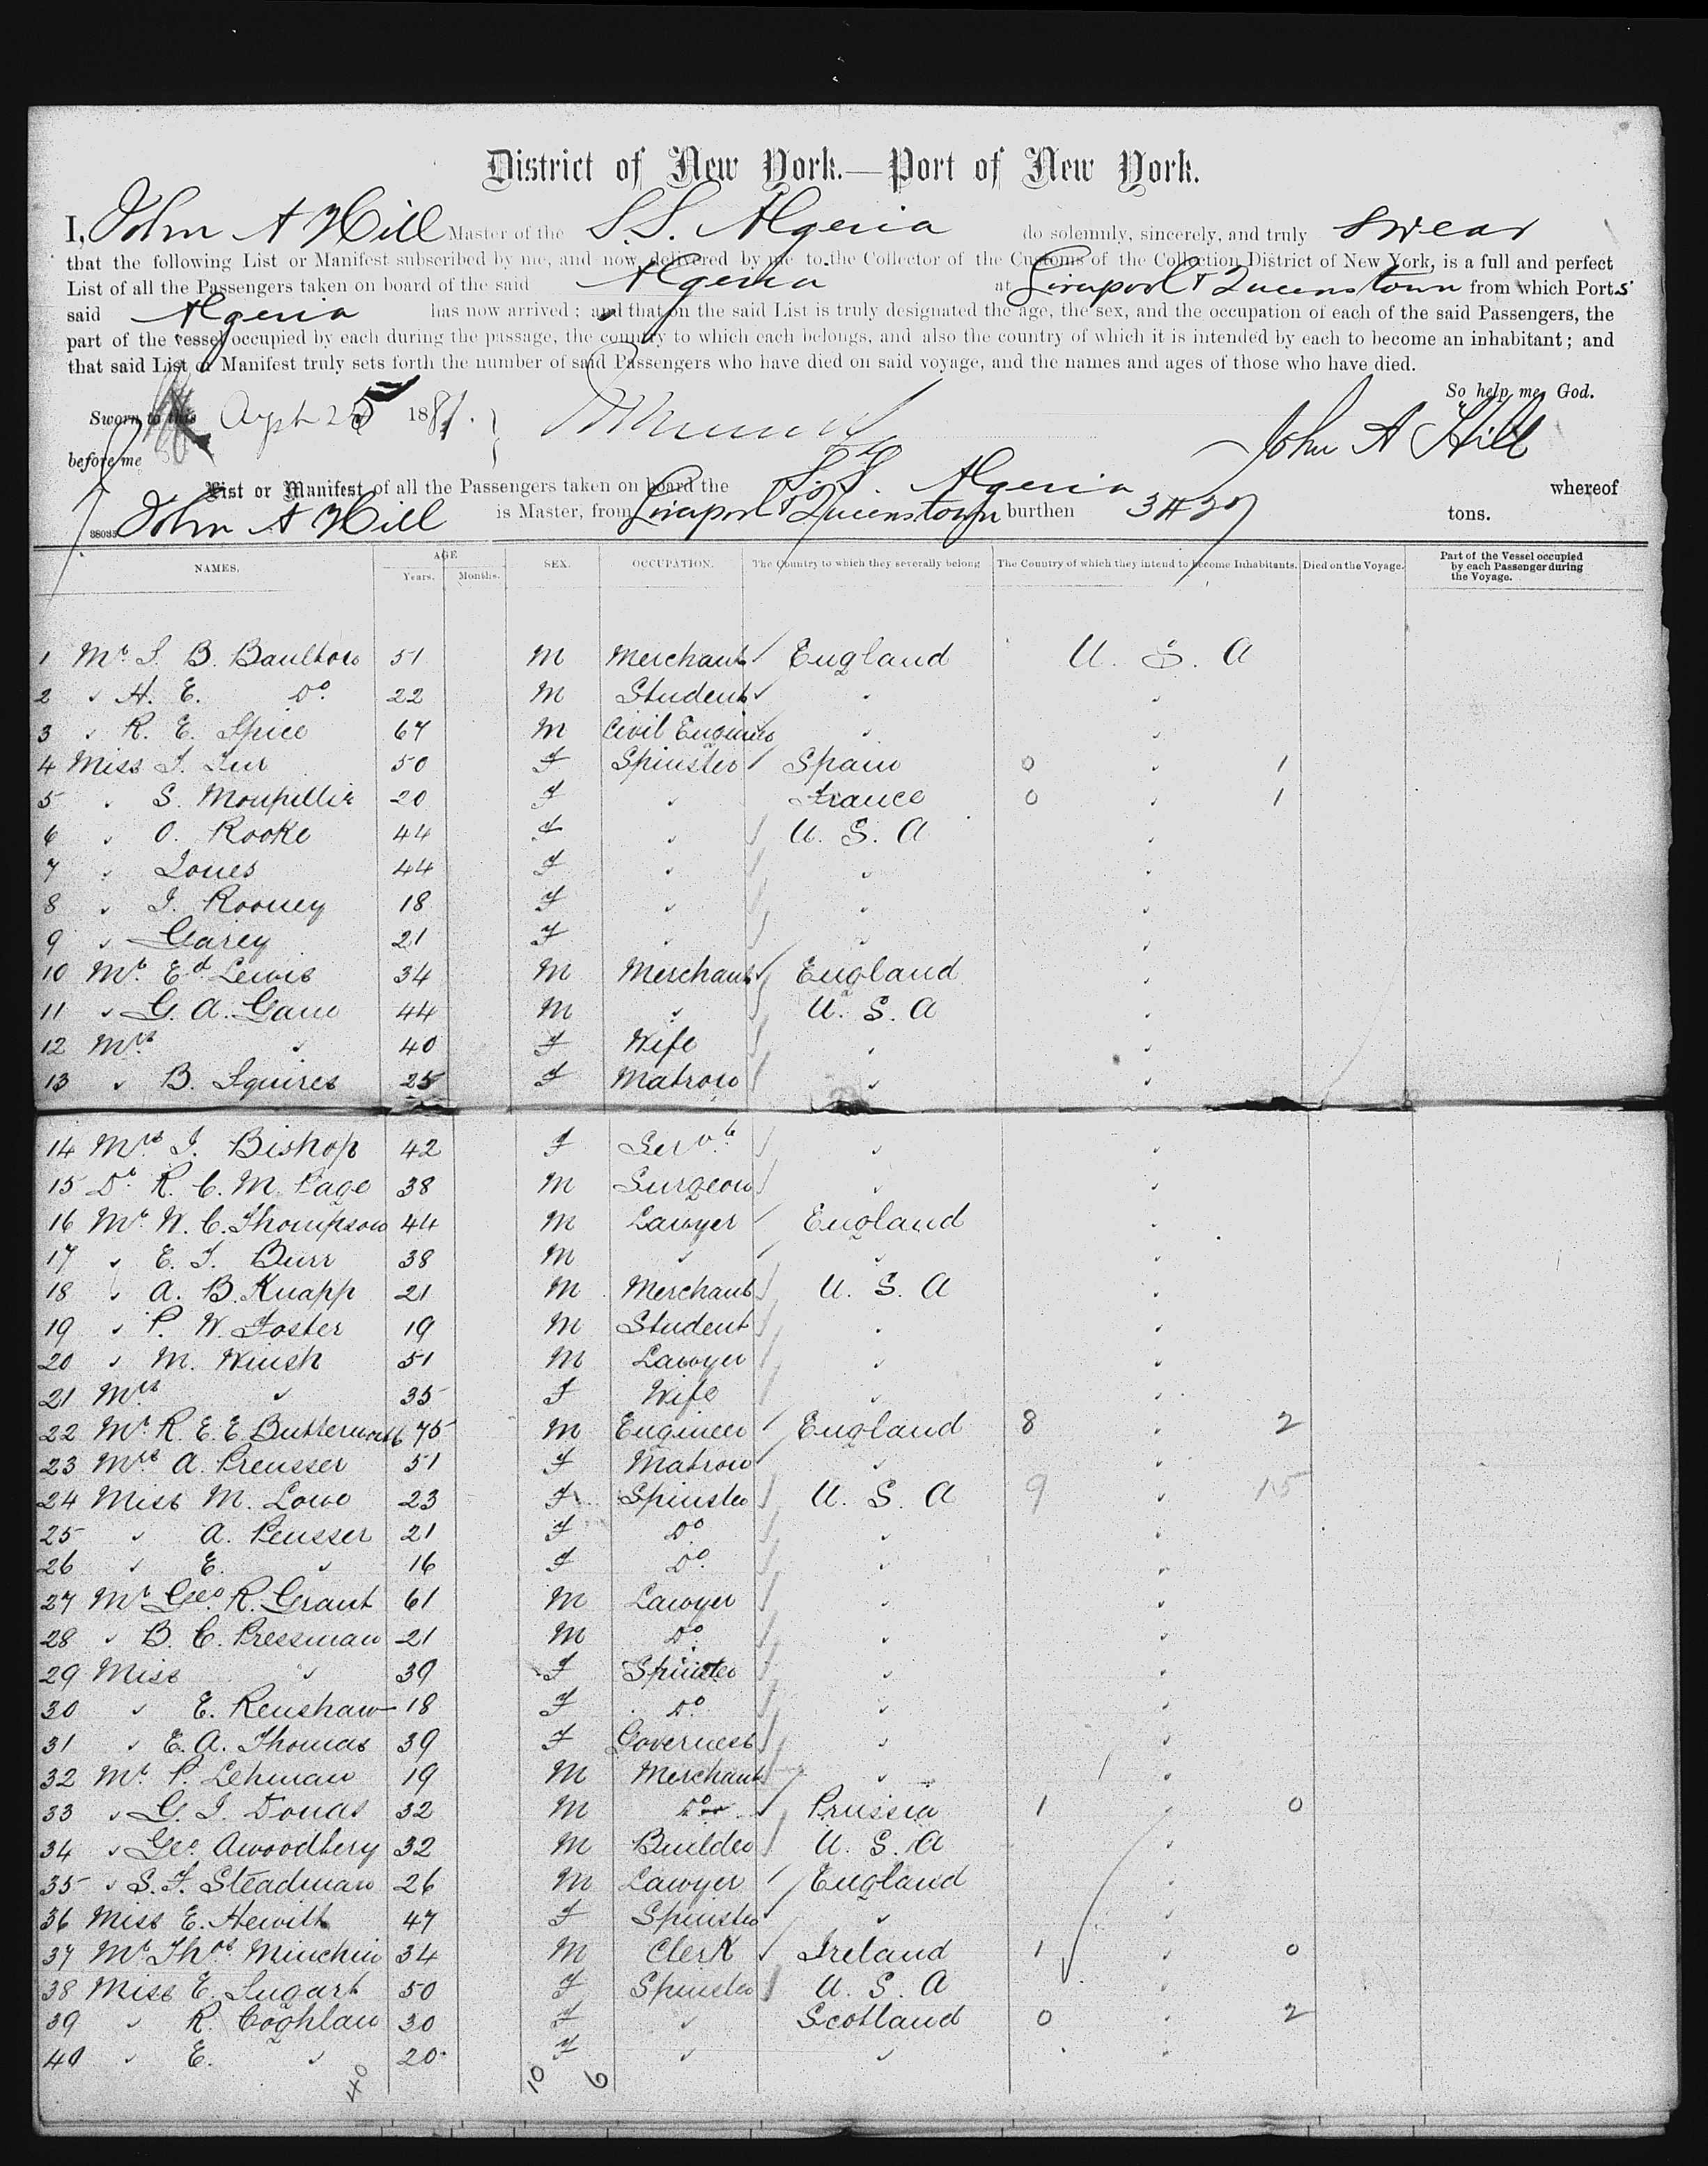 District of New York.—Port of New York.
I, John A Hill Master of the S.S. Algeria do solemnly, sincerely, and truly swear
that the following List or Manifest subscribed by me, and now delivered by me to the Collector of the Customs of the Collection District of New York, is a full and perfect
List of all the Passengers taken on board of the said Algeria at Liverpool & Queenstown from which Ports
said Algeria has now arrived; and that on the said List is truly designated the age, the sex, and the occupation of each of the said Passengers, the
part of the vessel occupied by each during the passage, the country to which each belongs, and also the country of which it is intended by each to become an inhabitant; and
that said List or Manifest truly sets forth the number of said Passengers who have died on said voyage, and the names and ages of those who have died.
So help me God.
Sworn to this 25 1881.
John A Hill
before me
List or Manifest of all the Passengers taken on board the S.S. Algeria whereof
38035 John A Hill is Master, from Liverpool & Queenstown burthen tons.
NAMES. AGE Years. Months. SEX. OCCUPATION. The Country to which they severally belong The Country of which they intend to become Inhabitants. Died on the Voyage. Part of the Vessel occupied by each Passenger during the Voyage.
1 Mr B. Baulton 51 M Merchant England U. S. A
2 " H. E. Do. 22 M Student " "
3 " R. E. Spice 67 M Civil Engineer " "
4 Miss 50 F Spinster Spain 0 " 1
5 " S. Monpellie 20 F " France 0 " 1
6 " O. Rooke 44 F " U. S. A "
7 " Jones 44 F " " "
8 " J. Rooney 18 F " " "
9 " Garey 21 F " " "
10 Mr Ed Lewis 34 M Merchant England "
11 " G. A. Gane 44 M " U. S. A "
12 Mrs " 40 F Wife " "
13 " B. Squires 25 F Matron " "
14 Mrs J. Bishop 42 F Servt " "
15 Dr R. C. M. Page 38 M Surgeon " "
16 Mr W. C. Thompson 44 M Lawyer England "
17 " E. T. Burr 38 M " " "
18 " A. B. Knapp 21 M Merchant U. S. A "
19 " P. W. Foster 19 M Student " "
20 " M. Winsh 51 M Lawyer " "
21 Mrs " 35 F Wife " "
22 Mr R. E. E. 75 M Engineer England 8 " 2
23 Mrs A. Preusser 51 F Matron " "
24 Miss M. Lowe 23 F Spinster U. S. A 9 " 15
25 " A. Peusser 21 F Do " "
26 " E. " 16 F Do. " "
27 Mr Geo. R. Grant 61 M Lawyer " "
28 " B. C. Pressman 21 M Do. " "
29 Miss " 39 F Spinster " "
30 " E. Renshaw 18 F Do " "
31 " E. A. Thomas 39 F Governess " "
32 Mr P. Lehman 19 M Merchant " "
33 " G. J. Donas 32 M Do Prussia 1 " 0
34 " Geo. Awoodbery 32 M Builder U. S. A "
35 " S. F. Steadman 26 M Lawyer England "
36 Miss E. Hewitt 47 F Spinster " "
37 Mr Thos Minchin 34 M Clerk Ireland 1 " 0
38 Miss E. Sugart 50 F Spinster U. S. A "
39 " R. Coghlan 30 F " Scotland 0 " 2
40 " E. " 20 F " " "
40 10 6